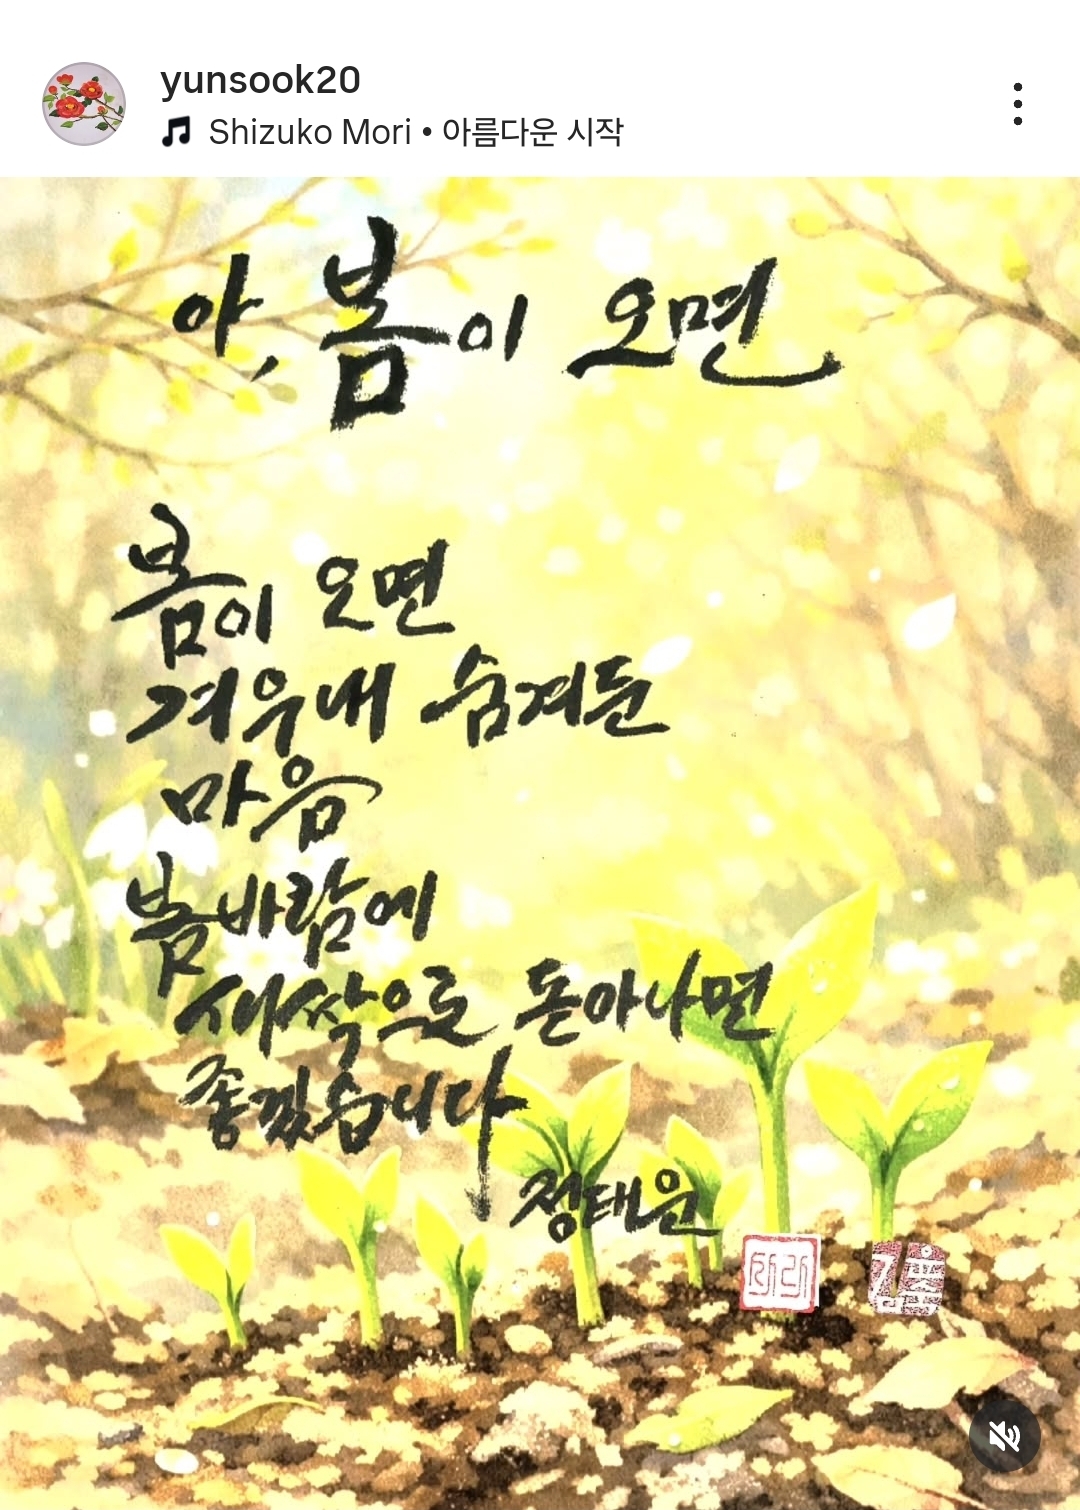 yunsook20
Shizuko Mori • 아름다운 시작
아, 봄이 오면
봄이 오면
겨우내 숨겨둔
마음
봄바람에
새싹으로 돋아나면
좋겠습니다
정태운